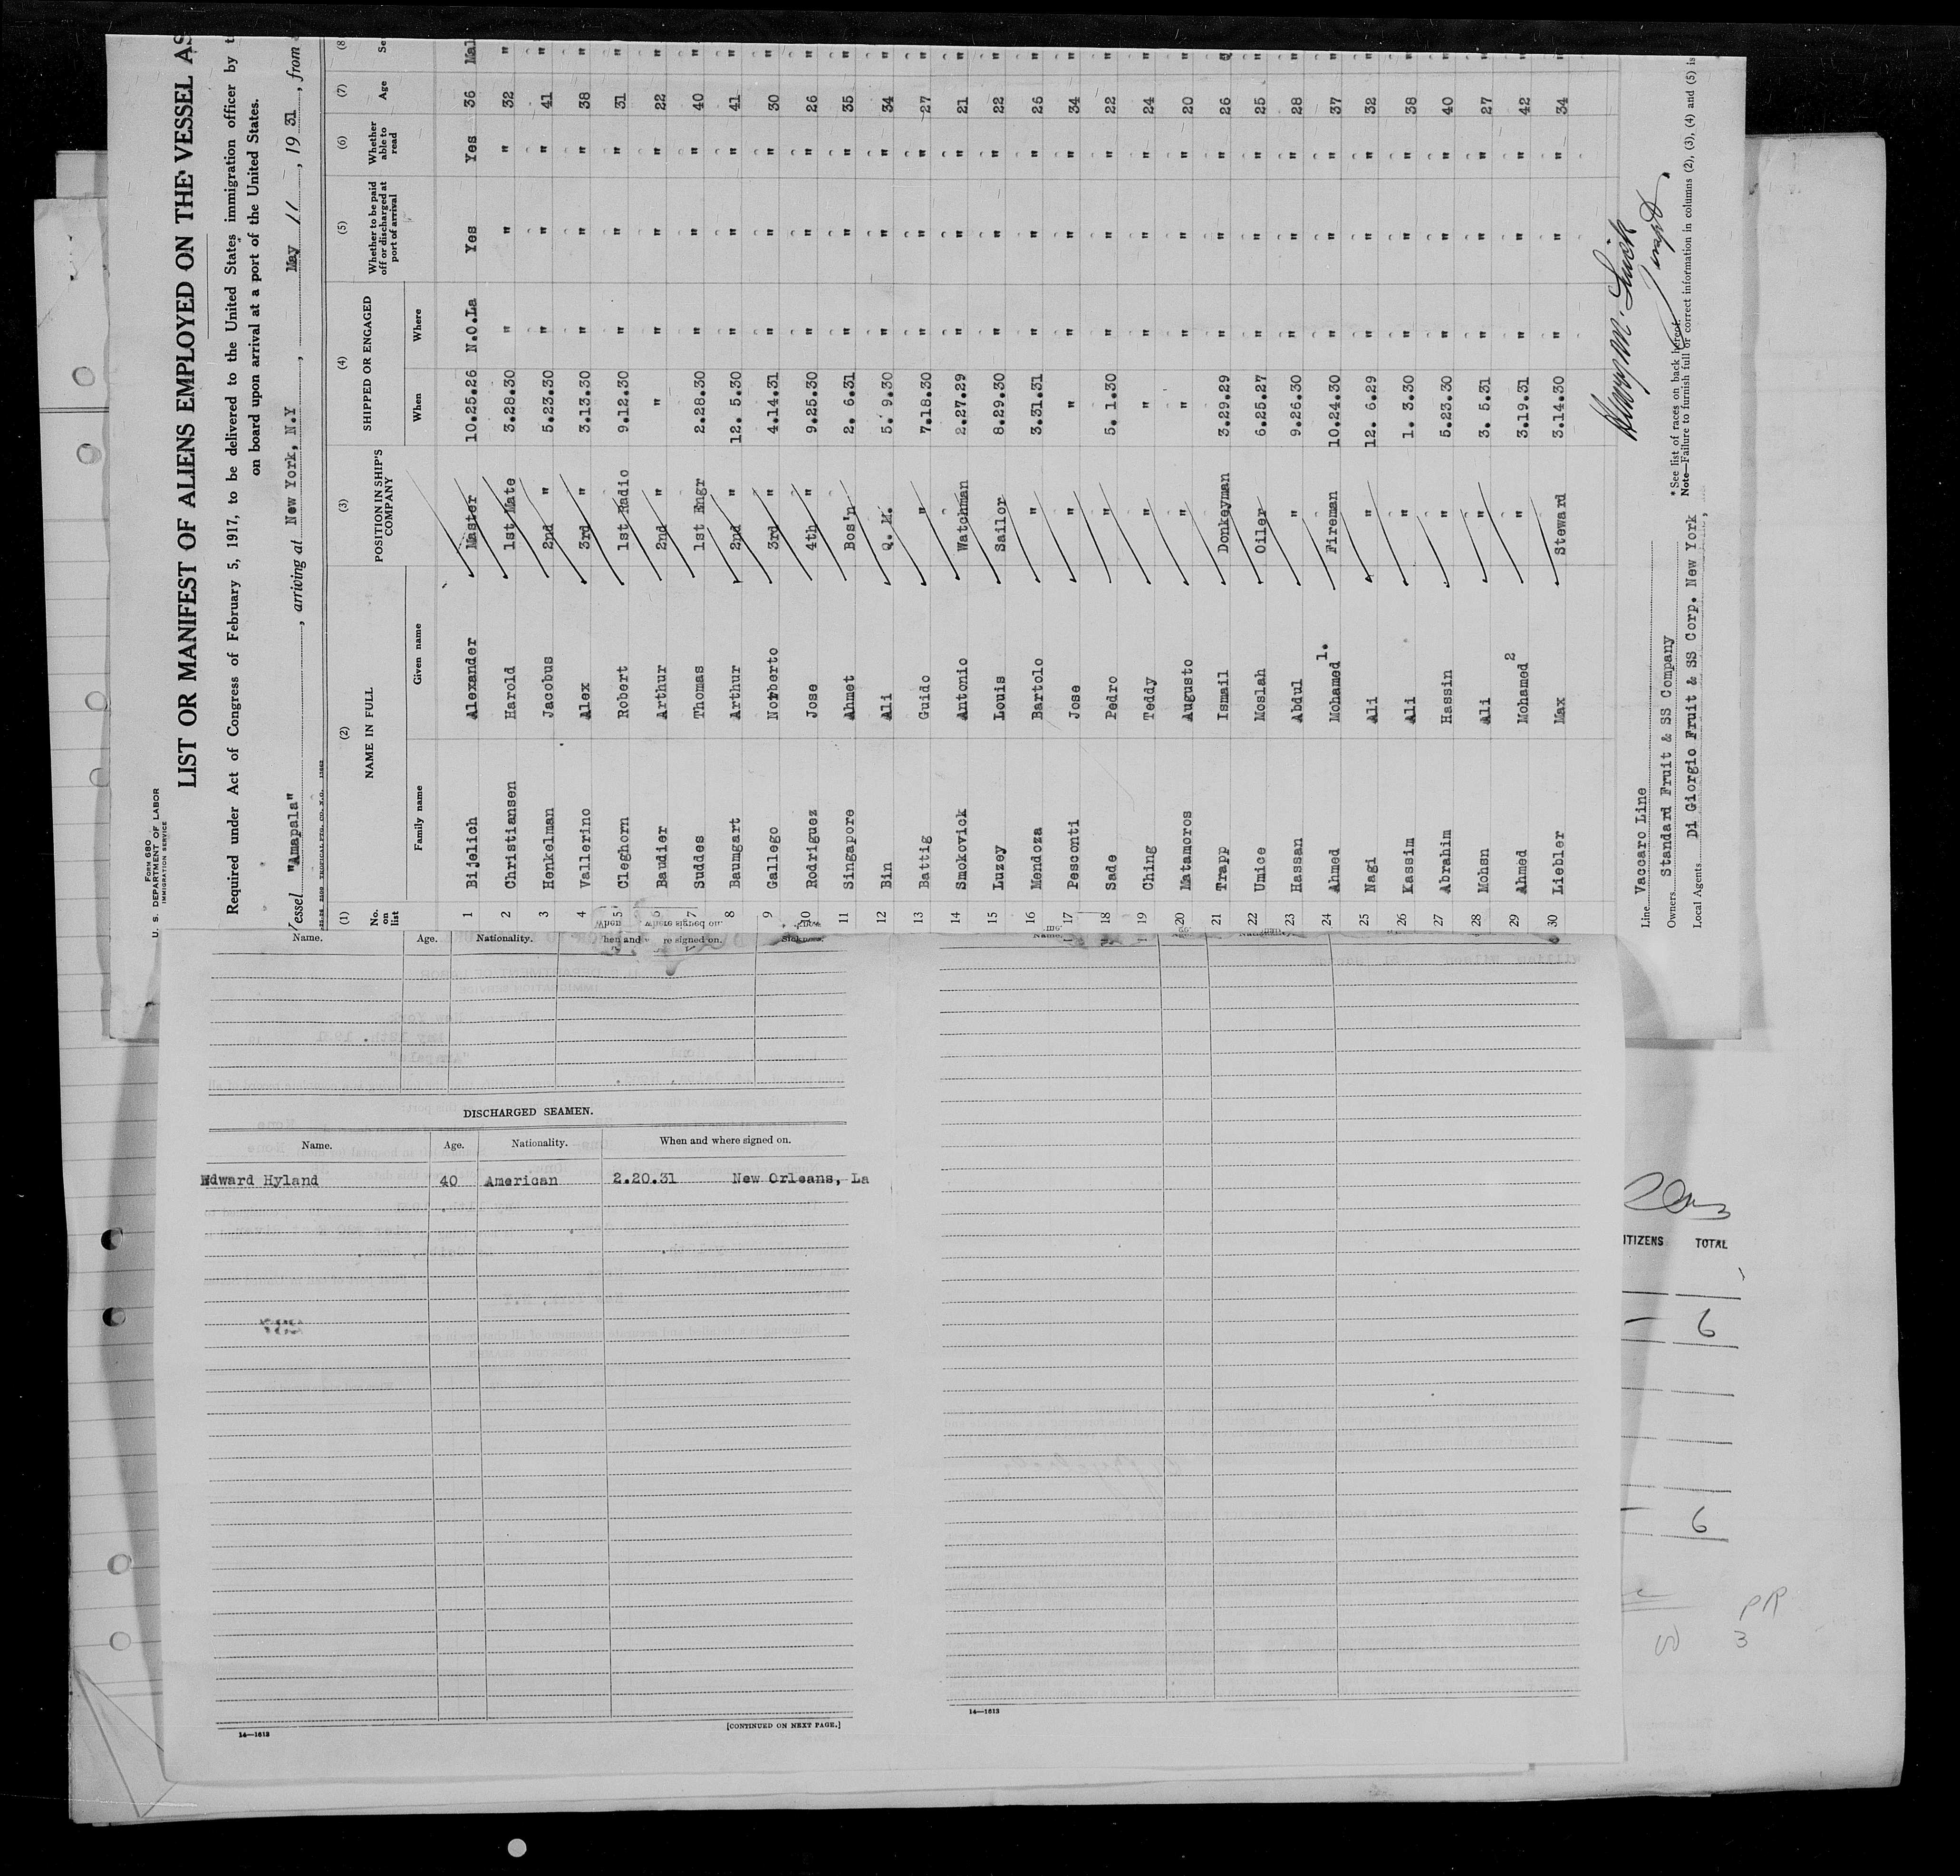 FORM 680
U. S. DEPARTMENT OF LABOR
IMMIGRATION SERVICE
LIST OR MANIFEST OF ALIENS EMPLOYED ON THE VESSEL AS
Required under Act of Congress of February 5, 1917, to be delivered to the United States immigration officer by
on board upon arrival at a port of the United States.
Vessel "Amapala", arriving at New York, N.Y, May 11, 1931, from
(1) (2) (3) (4) (5) (6) (7) (8
No. on list NAME IN FULL POSITION IN SHIP'S COMPANY SHIPPED OR ENGAGED Whether to be paid off or discharged at port of arrival Whether able to read Age Se
Family name Given name When Where
1 Bijelich Alexander Master 10.25.26 N.O.La Yes Yes 36 Mal
2 Christiansen Harold 1st Mate 3.28.30 " " " 32 "
3 Henkelman Jacobus 2nd " 5.23.30 " " " 41 "
4 Vallerino Alex 3rd " 3.13.30 " " " 38 "
5 Cleghorn Robert 1st Radio 9.12.30 " " " 31 "
6 Baudier Arthur 2nd " " " " " 22 "
7 Suddes Thomas 1st Engr 2.28.30 " " " 40 "
8 Baumgart Arthur 2nd " 12. 5.30 " " " 41 "
9 Gallego Norberto 3rd " 4.14.31 " " " 30 "
10 Rodriguez Jose 4th " 9.25.30 " " " 26 "
11 Singapore Ahmet Bos'n 2. 6.31 " " " 35 "
12 Bin Ali Q. M. 5. 9.30 " " " 34 "
13 Battig Guido " 7.18.30 " " " 27 "
14 Smokovick Antonio Watchman 2.27.29 " " " 21 "
15 Luzey Louis Sailor 8.29.30 " " " 22 "
16 Mendoza Bartolo " 3.31.31 " " " 26 "
17 Pesconti Jose " " " " " 34 "
18 Sade Pedro " 5. 1.30 " " " 22 "
19 Ching Teddy " " " " " 24 "
20 Matamoros Augusto " " " " " 20 "
21 Trapp Ismail Donkeyman 3.29.29 " " " 26 "
22 Umice Moslah Oiler 6.25.27 " " " 25 "
23 Hassan Abdul " 9.26.30 " " " 28 "
24 Ahmed Mohamed 1. Fireman 10.24.30 " " " 37 "
25 Nagi Ali " 12. 6.29 " " " 32 "
26 Kassim Ali " 1. 3.30 " " " 38 "
27 Abrahim Hassin " 5.23.30 " " " 40 "
28 Mohsn Ali " 3. 5.31 " " " 27 "
29 Ahmed Mohamed 2 " 3.19.31 " " " 42 "
30 Liebler Max Steward 3.14.30 " " " 34 "
Line Vaccaro Line
Owners Standard Fruit & SS Company
Local Agents Di Giorgio Fruit & SS Corp. New York
* See list of races on back hereof.
Note—Failure to furnish full or correct information in columns (2), (3), (4) and (5) is
Name. Age. Nationality. When and where signed on. Sickness.
DISCHARGED SEAMEN.
Name. Age. Nationality. When and where signed on.
Edward Hyland 40 American 2.20.31 New Orleans, La
14—1613
[CONTINUED ON NEXT PAGE.]
14—1613
ITIZENS TOTAL
6
6
PR
3